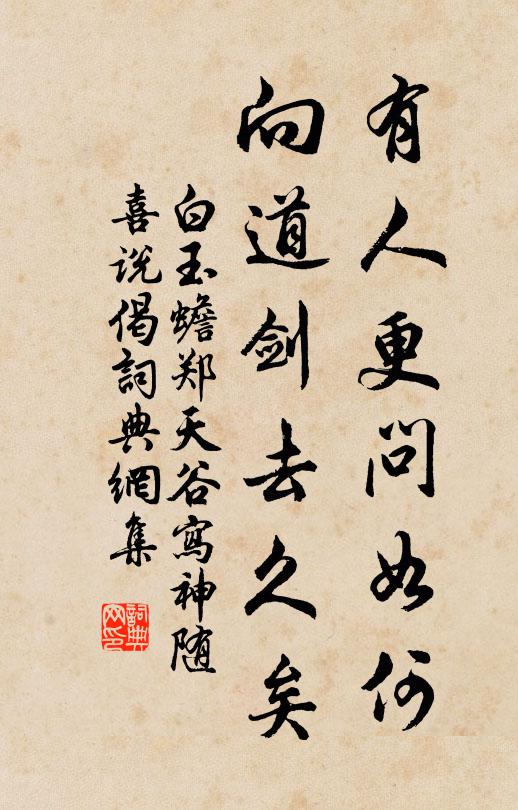 有人更问如何
向道剑去久矣
白玉蟾郑天谷寫神随
喜说偈詞典網集
詞典网印